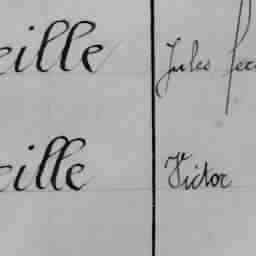 eille Jules fer
eille Victor